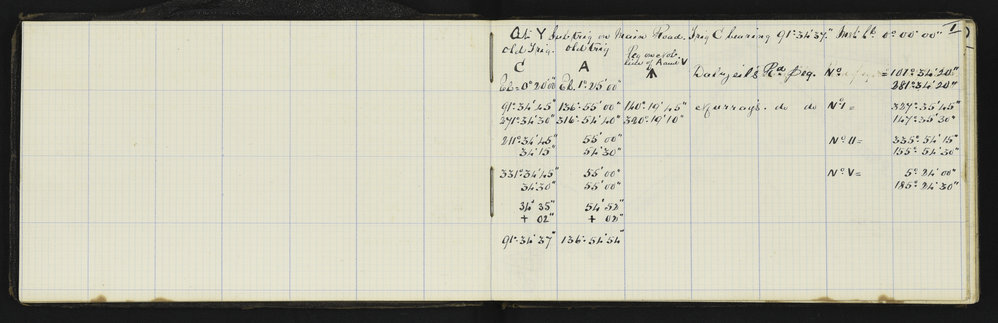 I
At Y Subtrig on Main Road. Trig C bearing 91°·34'37" Inst. Cb. 0°·00'00"
old Trig. old trig Peg on east
side of Road V
C A
Dalzeils Rd Peg. No = 101°·34'20"
Cb = 0°20'00 Cb. 1°·25'00" 281°·34'20"
91°·34'45" 136°·55'00" 140°·19'45" Murray's. do do No I = 327°·35'45"
271°·34'30" 316°·54'40" 320°·19'10" 147°·35'30"
211°·34'45" 55'00" No II = 335°·54'15"
34'15" 54'30" 155°·54'30"
331°·34'45" 55'00" No V = 5°·24'00"
34'30" 55'00" 185°·24'30"
34'35" 54'52"
+ 02" + 02"
91°·34'37" 136°·54'54"